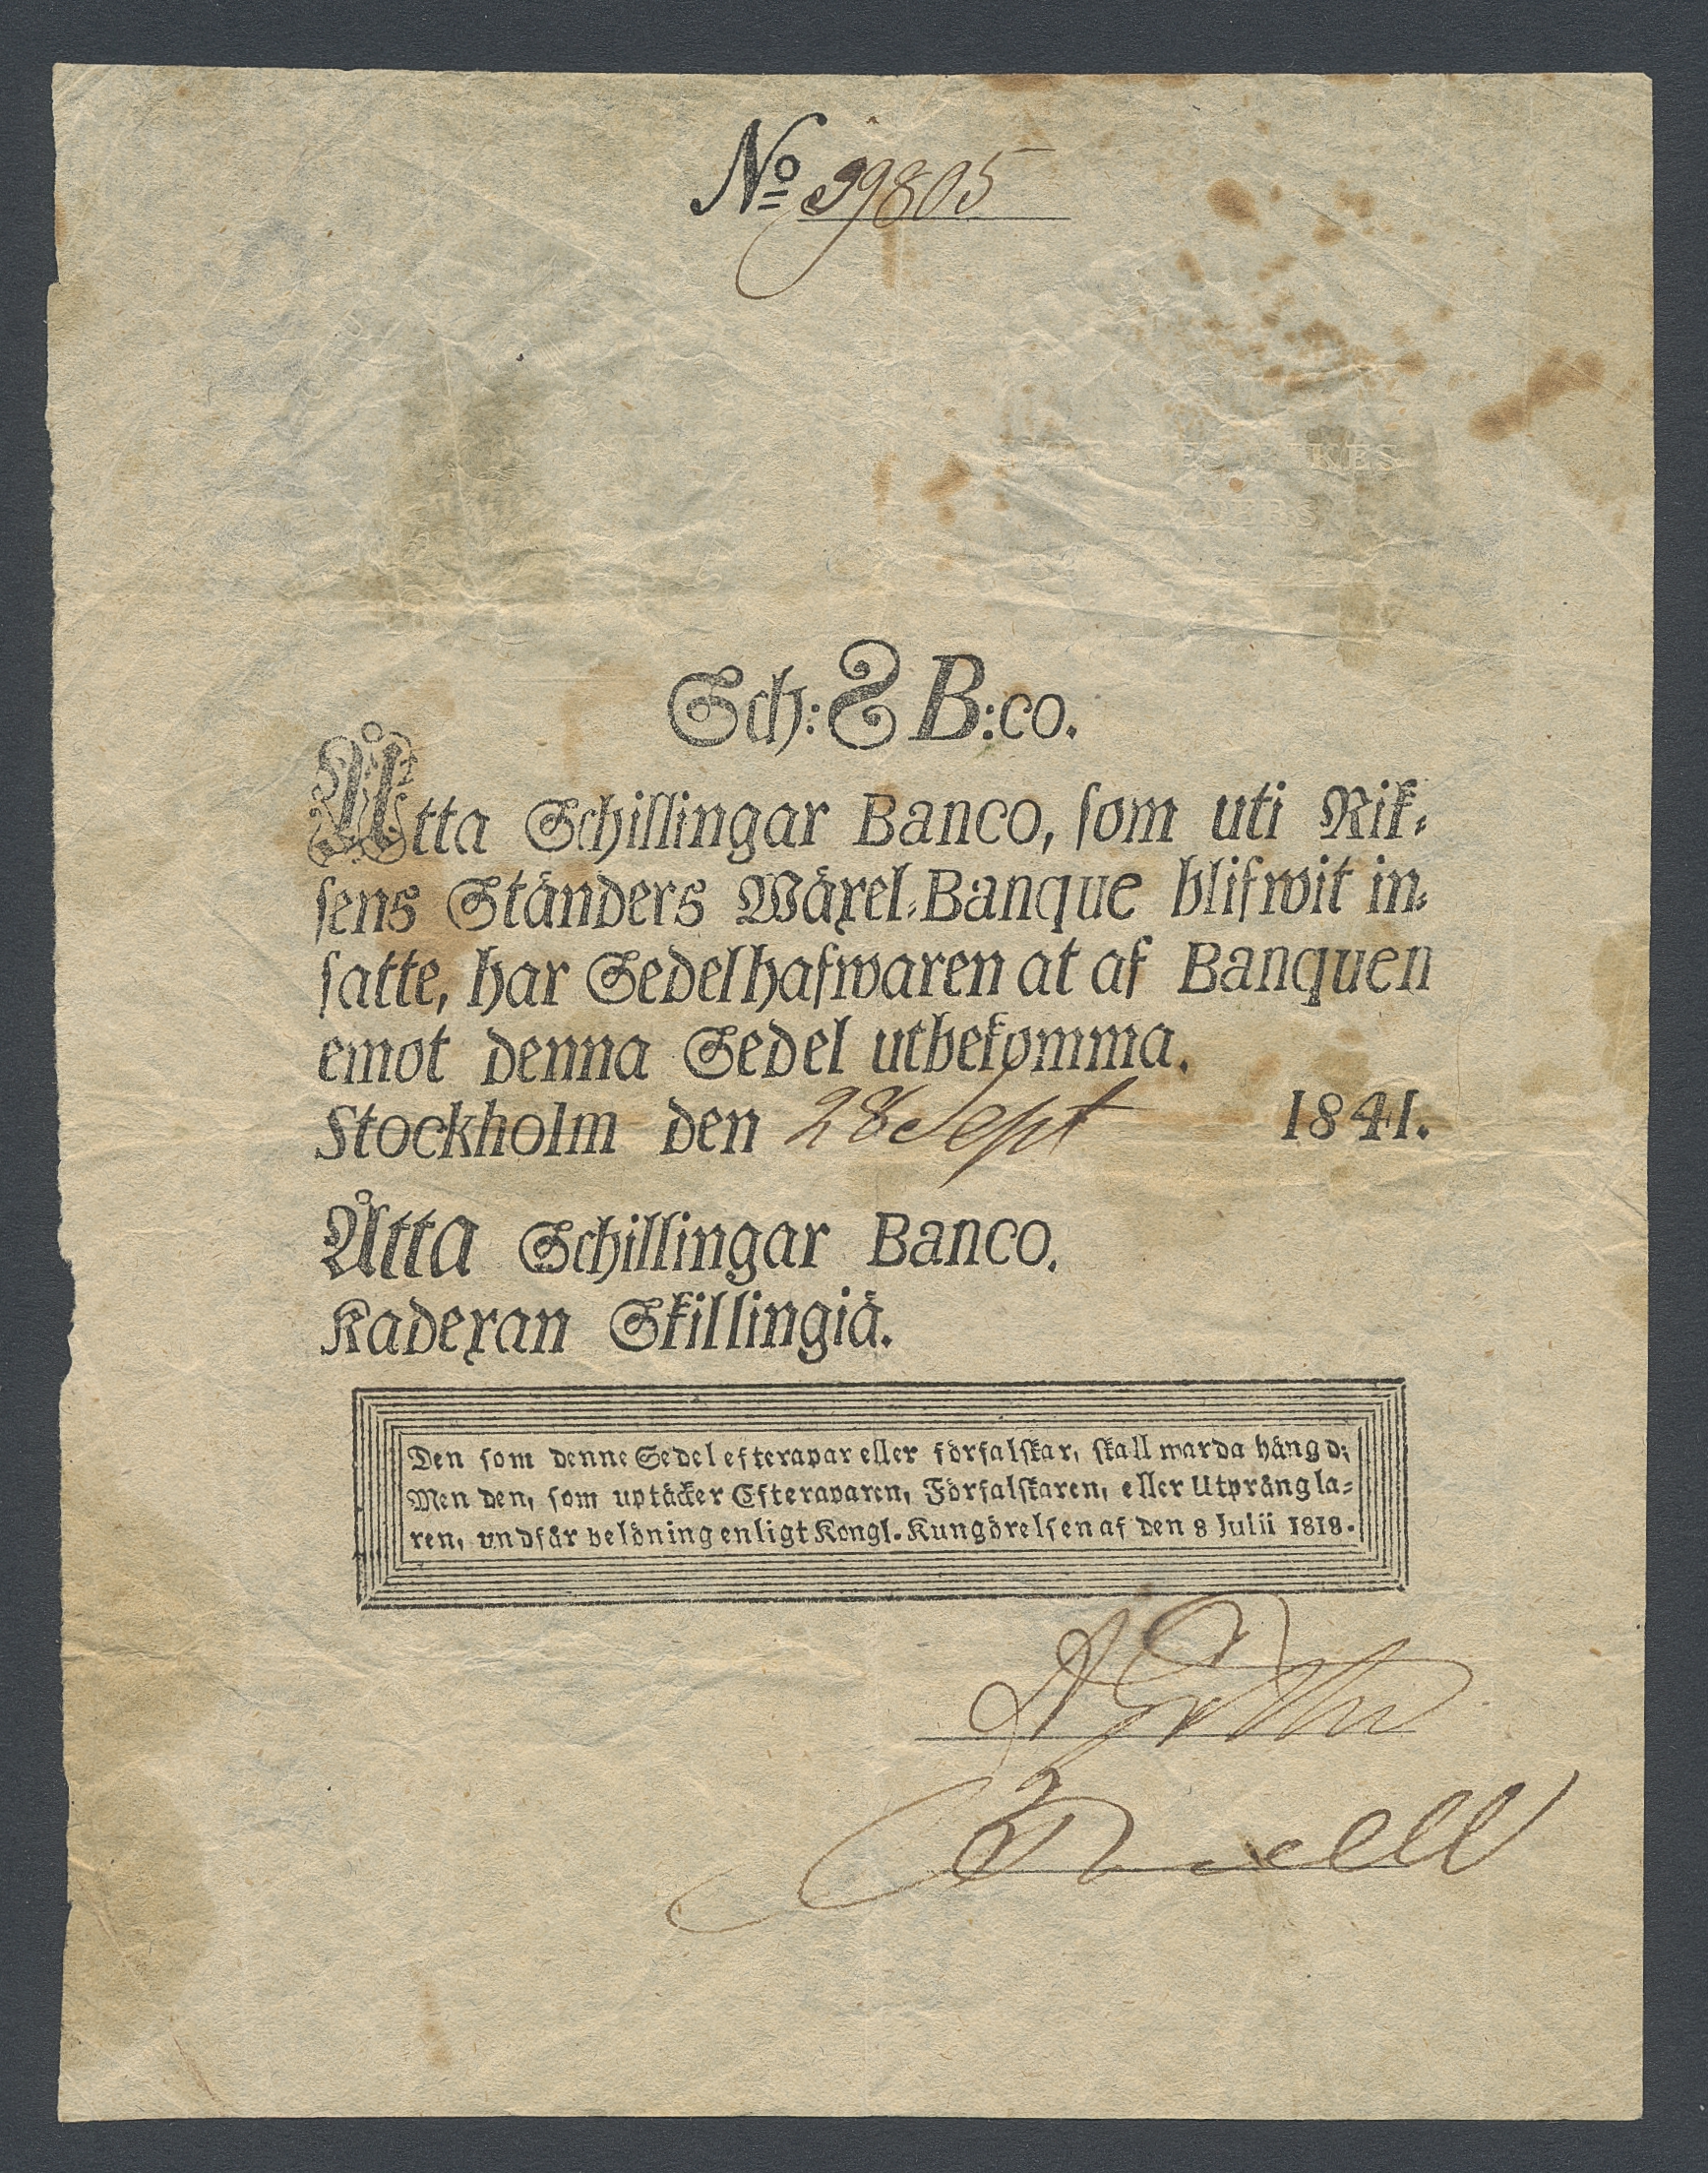 No 99805
RIKES
DERS
Sch: 8 B:co.
Åtta Schillingar Banco, som uti Rik-
sens Ständers Wäxel-Banque blifwit in-
satte, har Sedelhafwaren at af Banquen
emot denna Sedel utbekomma.
Stockholm den 28 Sept 1841.
Åtta Schillingar Banco.
Kadexan Skillingiä.
Den som denne Sedel efterapar eller förfalskar, skall warda hängd;
Men den, som uptäcker Efteraparen, Förfalskaren, eller Utprångla-
ren, undfår belöning enligt Kongl. Kungörelsen af den 8 Julii 1818.